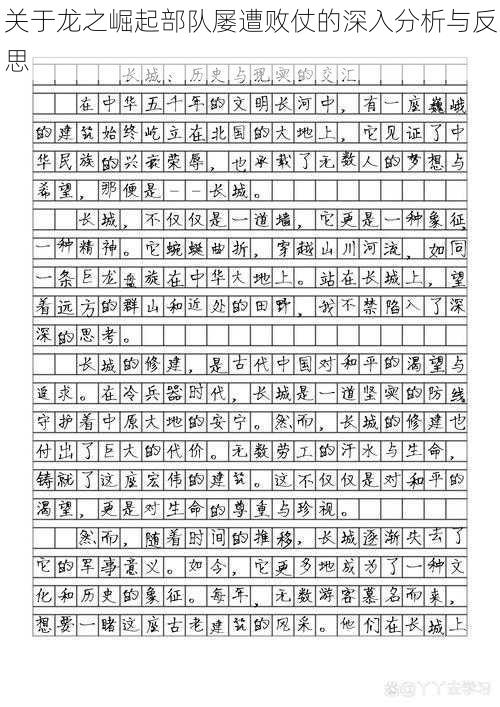 关于龙之崛起部队屡遭败仗的深入分析与反
思
长城：历史与现实的交汇
在中华五千年的文明长河中，有一座巍峨
的建筑始终屹立在北国的大地上，它见证了中
华民族的兴衰荣辱，也承载了无数人的梦想与
希望，那便是——长城。
长城，不仅仅是一道墙，它更是一种象征，
一种精神。它蜿蜒曲折，穿越山川河流，如同
一条巨龙盘旋在中华大地上。站在长城上，望
着远方的群山和近处的田野，我不禁陷入了深
深的思考。
长城的修建，是古代中国对和平的渴望与
追求。在冷兵器时代，长城是一道坚实的防线，
守护着中原大地的安宁。然而，长城的修建也
付出了巨大的代价。无数劳工的汗水与生命，
铸就了这座宏伟的建筑。这不仅仅是对和平的
渴望，更是对生命的尊重与珍视。
然而，随着时间的推移，长城逐渐失去了
它的军事意义。如今，它更多地成为了一种文
化和历史的象征。每年，无数游客慕名而来，
想要一睹这座古老建筑的风采。他们在长城上
@丫丫去学习